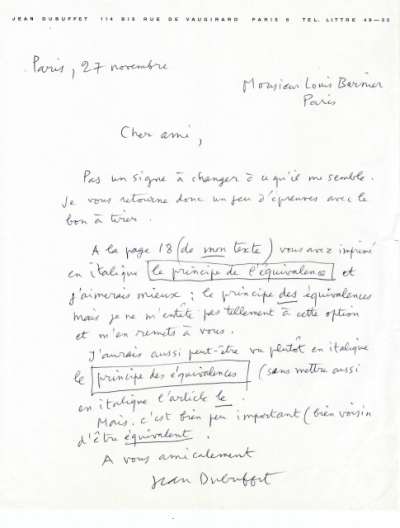 JEAN DUBUFFET 114 BIS RUE DE VAUGIRARD PARIS 6 TEL. LITTRE
Paris, 27 novembre
Monsieur Louis Barnier
Paris
Cher ami,
Pas un signe à changer à ce qu'il me semble.
Je vous retourne donc un jeu d'épreuves avec le
bon à tirer.
A la page 18 (de mon texte) vous avez imprimé
en italique le principe de l'équivalence et
j'aimerais mieux : le principe des équivalences
mais je ne m'entête pas tellement à cette option
et m'en remets à vous.
J'aurais aussi peut-être vu plutôt en italique
le principe des équivalences (sans mettre aussi
en italique l'article le.
Mais c'est bien peu important (bien voisin
d'être équivalent.
A vous amicalement
Jean Dubuffet